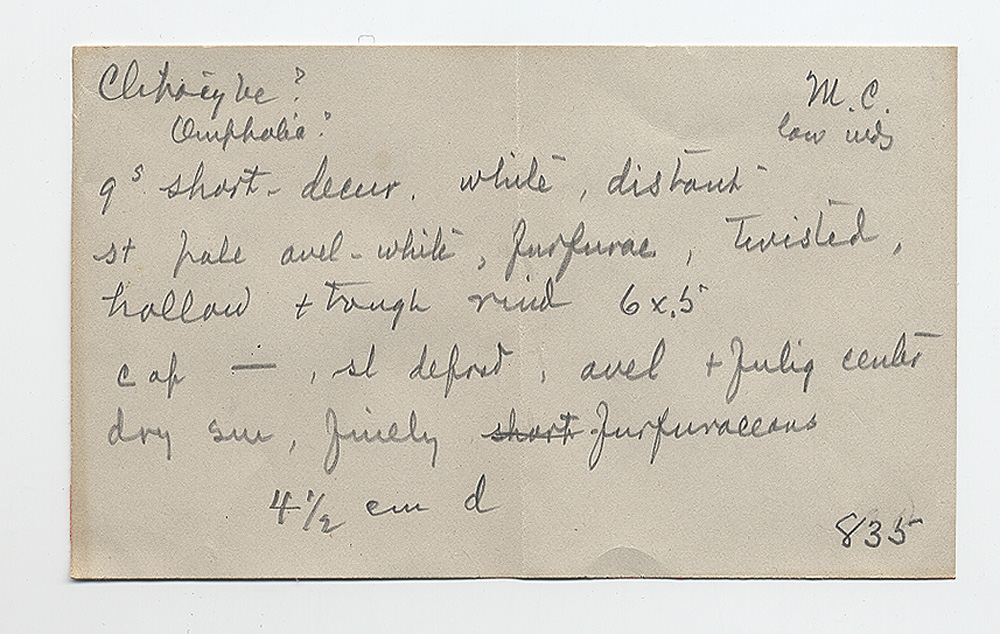 Clitocybe? M.C.
Omphalia? low wds
gs short-decur. white, distant
st pale avel-white, furfurac, twisted,
hollow + tough rind 6 x .5
cap —, sl deprsd, avel + fulig center
dry sur, finely short furfuraceous
4 1/2 cm d
835